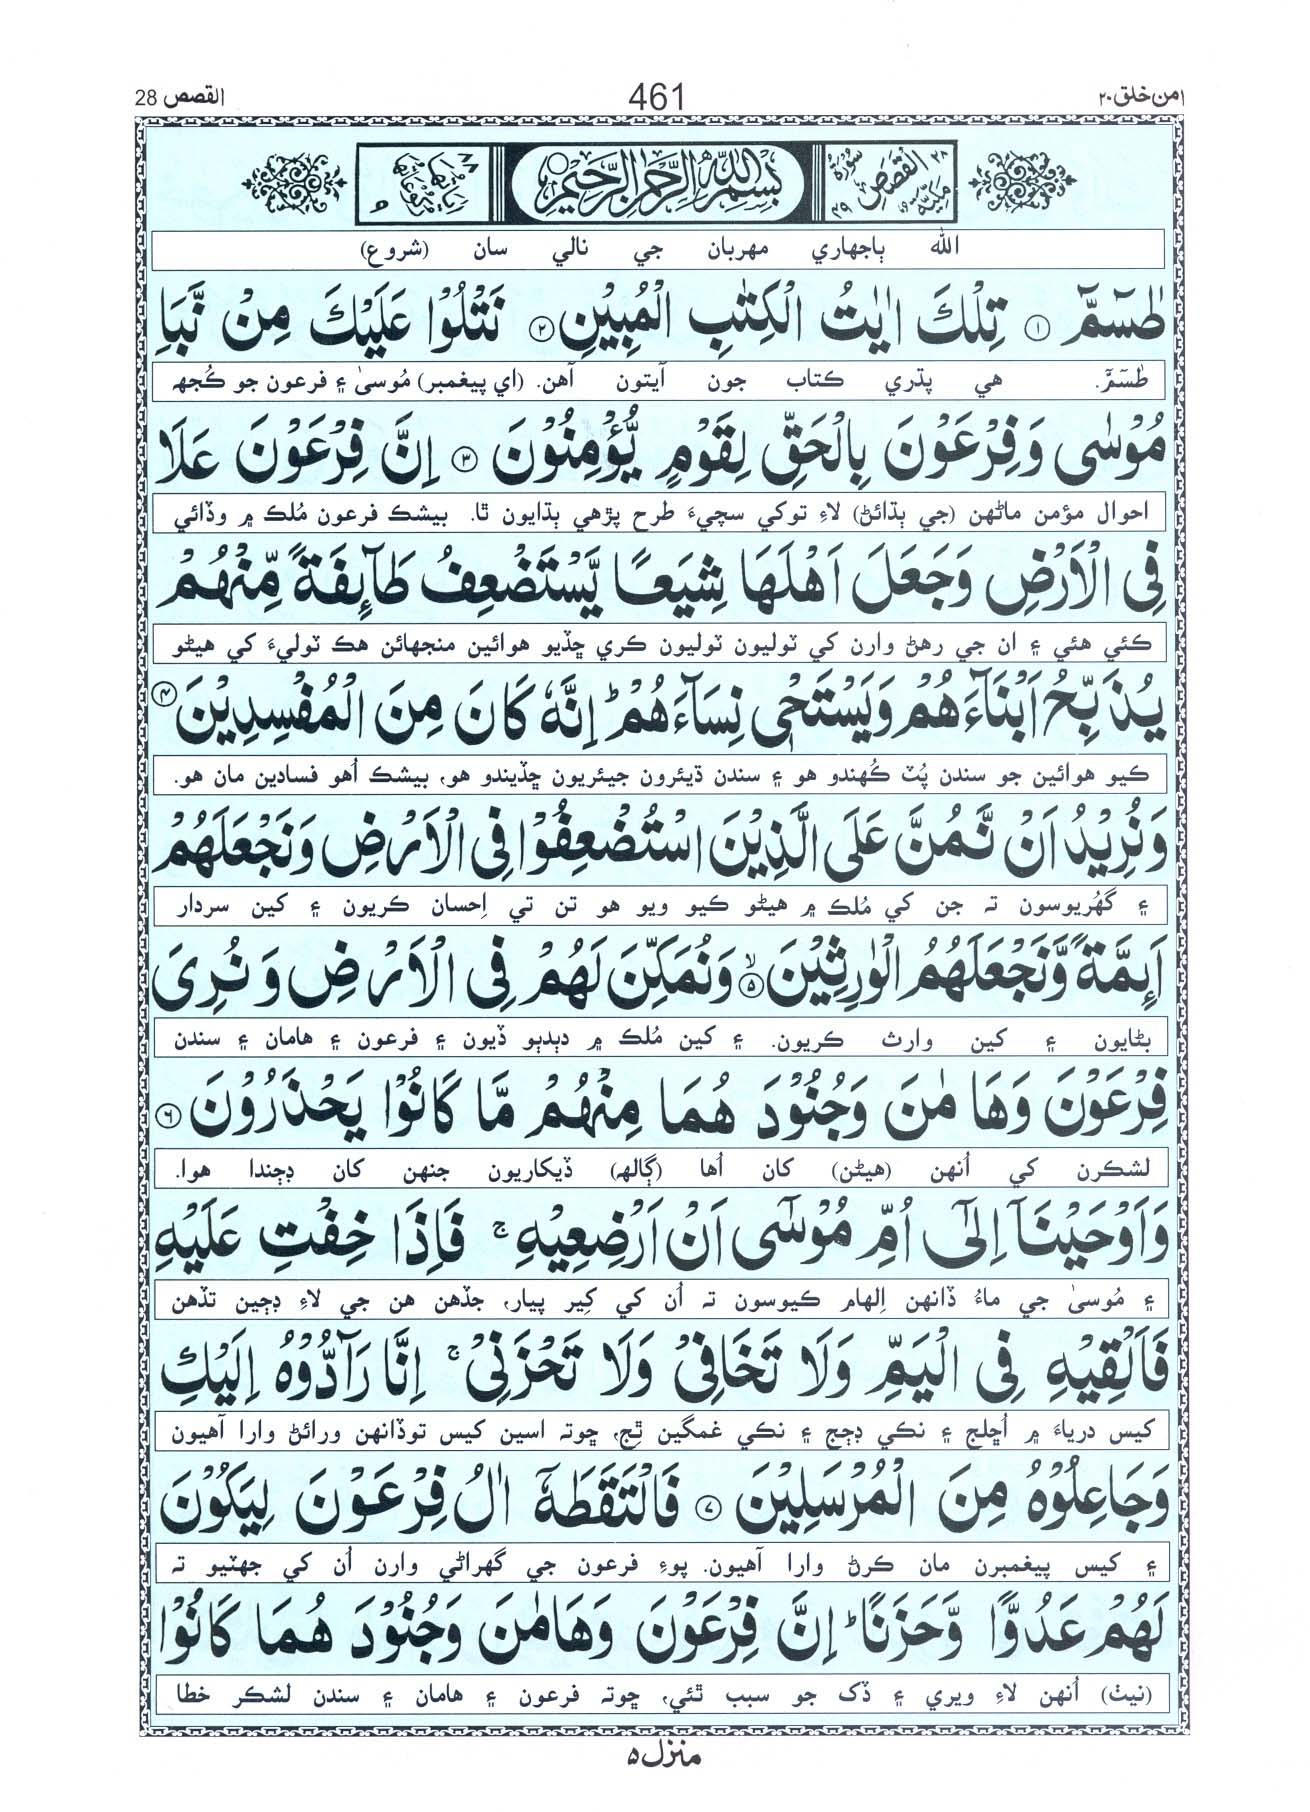 امن خلق ۲۰
461
القصص 28
۲۸ سُوْرَةُ الْقَصَصِ مَكِّيَّةٌ ۴۹
بِسْمِ اللّٰهِ الرَّحْمٰنِ الرَّحِيْمِ
اٰيَاتُهَا ۸۸ رُكُوْعَاتُهَا ۹
الله ٻاجهاري مهربان جي نالي سان (شروع)
طٰسٓمّٓ ۱ تِلْكَ اٰيٰتُ الْكِتٰبِ الْمُبِيْنِ ۲ نَتْلُوْا عَلَيْكَ مِنْ نَّبَاِ
طٰسٓمّٓ. هي پڌري ڪتاب جون آيتون آهن. (اي پيغمبر) مُوسىٰ ۽ فرعون جو ڪُجهہ
مُوْسٰى وَفِرْعَوْنَ بِالْحَقِّ لِقَوْمٍ يُّؤْمِنُوْنَ ۳ اِنَّ فِرْعَوْنَ عَلَا
احوال مؤمن ماڻهن (جي ٻڌائڻ) لاءِ توکي سچيءَ طرح پڙهي ٻڌايون ٿا. بيشڪ فرعون مُلڪ ۾ وڏائي
فِى الْاَرْضِ وَجَعَلَ اَهْلَهَا شِيَعًا يَّسْتَضْعِفُ طَآئِفَةً مِّنْهُمْ
ڪئي هئي ۽ ان جي رهڻ وارن کي ٽوليون ٽوليون ڪري ڇڏيو هوائين منجهائن هڪ ٽوليءَ کي هيڻو
يُذَبِّحُ اَبْنَآءَهُمْ وَيَسْتَحْىٖ نِسَآءَهُمْ ؕ اِنَّهٗ كَانَ مِنَ الْمُفْسِدِيْنَ ۴
ڪيو هوائين جو سندن پُٽ ڪُهندو هو ۽ سندن ڌيئرون جيئريون ڇڏيندو هو، بيشڪ اُهو فسادين مان هو.
وَنُرِيْدُ اَنْ نَّمُنَّ عَلَى الَّذِيْنَ اسْتُضْعِفُوْا فِى الْاَرْضِ وَنَجْعَلَهُمْ
۽ گهُريوسون تہ جن کي مُلڪ ۾ هيڻو ڪيو ويو هو تن تي اِحسان ڪريون ۽ کين سردار
اَئِمَّةً وَّنَجْعَلَهُمُ الْوٰرِثِيْنَ ۙ ۵ وَنُمَكِّنَ لَهُمْ فِى الْاَرْضِ وَنُرِىَ
بڻايون ۽ کين وارث ڪريون. ۽ کين مُلڪ ۾ دٻدٻو ڏيون ۽ فرعون ۽ هامان ۽ سندن
فِرْعَوْنَ وَهَامٰنَ وَجُنُوْدَهُمَا مِنْهُمْ مَّا كَانُوْا يَحْذَرُوْنَ ۶
لشڪرن کي اُنهن (هيڻن) کان اُها (ڳالهہ) ڏيکاريون جنهن کان ڊڄندا هوا.
وَاَوْحَيْنَآ اِلٰٓى اُمِّ مُوْسٰٓى اَنْ اَرْضِعِيْهِ ۚ فَاِذَا خِفْتِ عَلَيْهِ
۽ مُوسىٰ جي ماءُ ڏانهن اِلهام ڪيوسون تہ اُن کي کِير پيار، جڏهن هن جي لاءِ ڊڄين تڏهن
فَاَلْقِيْهِ فِى الْيَمِّ وَلَا تَخَافِىْ وَلَا تَحْزَنِىْ ۚ اِنَّا رَآدُّوْهُ اِلَيْكِ
کيس درياءَ ۾ اُڇلج ۽ نڪي ڊڄج ۽ نڪي غمگين ٿِج، ڇوتہ اسين کيس توڏانهن ورائڻ وارا آهيون
وَجَاعِلُوْهُ مِنَ الْمُرْسَلِيْنَ ۷ فَالْتَقَطَهٗٓ اٰلُ فِرْعَوْنَ لِيَكُوْنَ
۽ کيس پيغمبرن مان ڪرڻ وارا آهيون. پوءِ فرعون جي گهراڻي وارن اُن کي جهٽيو تہ
لَهُمْ عَدُوًّا وَّحَزَنًا ؕ اِنَّ فِرْعَوْنَ وَهَامٰنَ وَجُنُوْدَهُمَا كَانُوْا
(نيٺ) اُنهن لاءِ ويري ۽ ڏک جو سبب ٿئي، ڇوتہ فرعون ۽ هامان ۽ سندن لشڪر خطا
منزل ۵